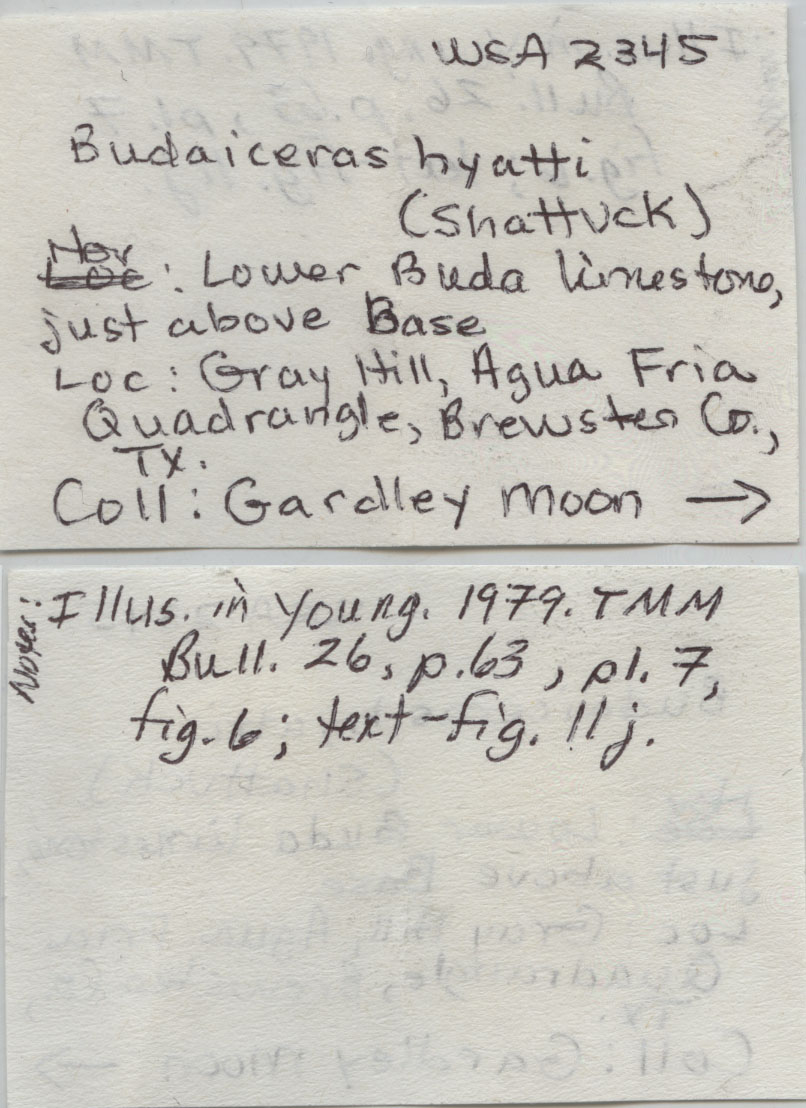 WSA 2345
Budaiceras hyatti
(Shattuck)
Hor
Loc: Lower Buda limestone,
just above Base
Loc: Gray Hill, Agua Fria
Quadrangle, Brewster Co.,
TX.
Coll: Gardley Moon →
Notes: Illus. in Young. 1979. TMM
Bull. 26, p.63, pl. 7,
fig. 6; text-fig. 11j.